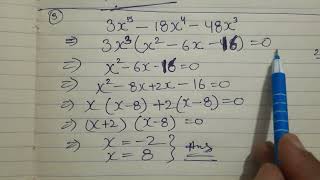 9
3x⁵ - 18x⁴ - 48x³
⇒ 3x³(x² - 6x - 16) = 0
⇒ x² - 6x - 16 = 0
⇒ x² - 8x + 2x - 16 = 0
⇒ x (x-8) + 2(x-8) = 0
⇒ (x+2) (x-8) = 0
⇒ x = -2
x = 8 } Ans